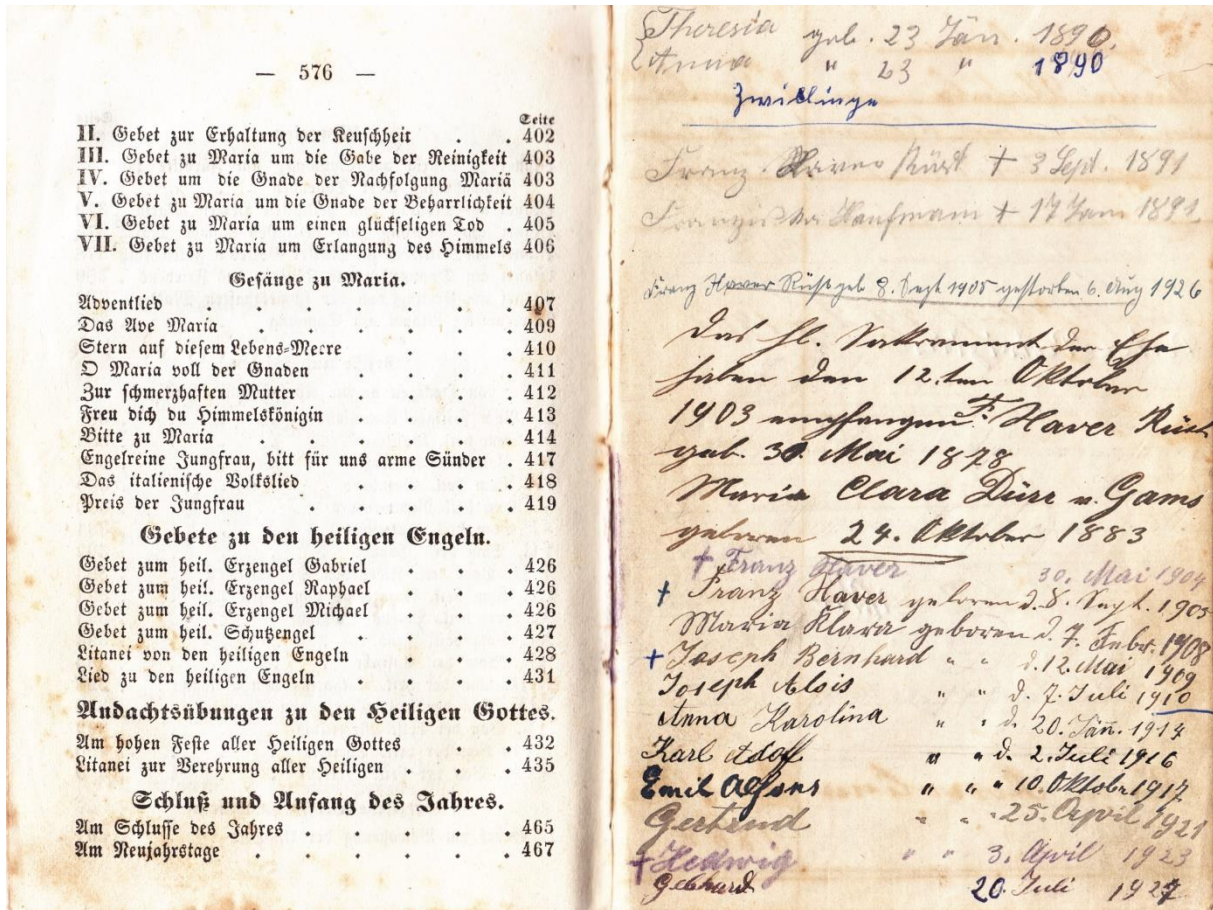 — 576 —
Seite
II. Gebet zur Erhaltung der Keuschheit . . 402
III. Gebet zu Maria um die Gabe der Reinigkeit 403
IV. Gebet um die Gnade der Nachfolgung Mariä 403
V. Gebet zu Maria um die Gnade der Beharrlichkeit 404
VI. Gebet zu Maria um einen glückseligen Tod . 405
VII. Gebet zu Maria um Erlangung des Himmels 406
Gesänge zu Maria.
Adventlied . . . . . . 407
Das Ave Maria . . . . . 409
Stern auf diesem Lebens-Meere . . . 410
O Maria voll der Gnaden . . . . 411
Zur schmerzhaften Mutter . . . . 412
Freu dich du Himmelskönigin . . . 413
Bitte zu Maria . . . . . 414
Engelreine Jungfrau, bitt für uns arme Sünder . 417
Das italienische Volkslied . . . . 418
Preis der Jungfrau . . . . . 419
Gebete zu den heiligen Engeln.
Gebet zum heil. Erzengel Gabriel . . . 426
Gebet zum heil. Erzengel Raphael . . . 426
Gebet zum heil. Erzengel Michael . . . 426
Gebet zum heil. Schutzengel . . . . 427
Litanei von den heiligen Engeln . . . 428
Lied zu den heiligen Engeln . . . . 431
Andachtsübungen zu den Heiligen Gottes.
Am hohen Feste aller Heiligen Gottes . . . 432
Litanei zur Verehrung aller Heiligen . . . 435
Schluß und Anfang des Jahres.
Am Schlusse des Jahres . . . . . 465
Am Neujahrstage . . . . . 467
Theresia geb. 23 Jän. 1890.
Anna " 23 " 1890
Zwillinge
Franz Xaver Rüst + 3 Sept. 1891
Franziska Kaufmann + 17 1891
Franz Xaver Rüst geb. 8. Sept 1905 gestorben 6. Aug 1926
Das hl. Sakrament der Ehe
haben den 12.ten Oktober
1903 empfangen F. Xaver Rüst
geb. 30. Mai 1878
Maria Clara Dürr v. Gams
geboren 24. Oktober 1883
+ Franz Xaver 30. Mai 1904
+ Franz Xaver geboren d. 8. Sept. 1905
Maria Klara geboren d. 7. Febr. 1908
+ Joseph Bernhard " " d. 12. Mai 1909
Joseph Alois " " d. 7. Juli 1910
Anna Karolina " " d. 20. Jän. 1914
Karl Adolf " " d. 2. Juli 1916
Emil Alfons " " " 10. Oktobr 1917
Gertrud " " " 25. April 1921
+ Hedwig " " 3. April 1923
Gebhard 20. Juli 1927